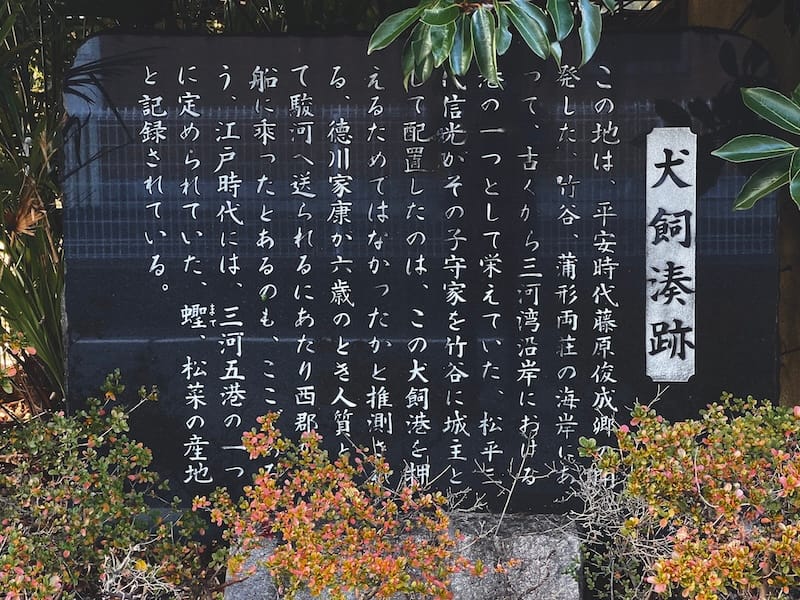 犬飼湊跡
この地は、平安時代藤原俊成卿の開
発した、竹谷、蒲形両荘の海岸にあ
って、古くから三河湾沿岸における
港の一つとして栄えていた、松平三
代信光がその子守家を竹谷に城主と
して配置したのは、この犬飼港を押
えるためではなかったかと推測され
る。徳川家康が六歳のとき人質と
て駿河へ送られるにあたり西郡か
船に乗ったとあるのも、ここ
う、江戸時代には、三河五港の一つ
に定められていた、蟶、松菜の産地
と記録されている。